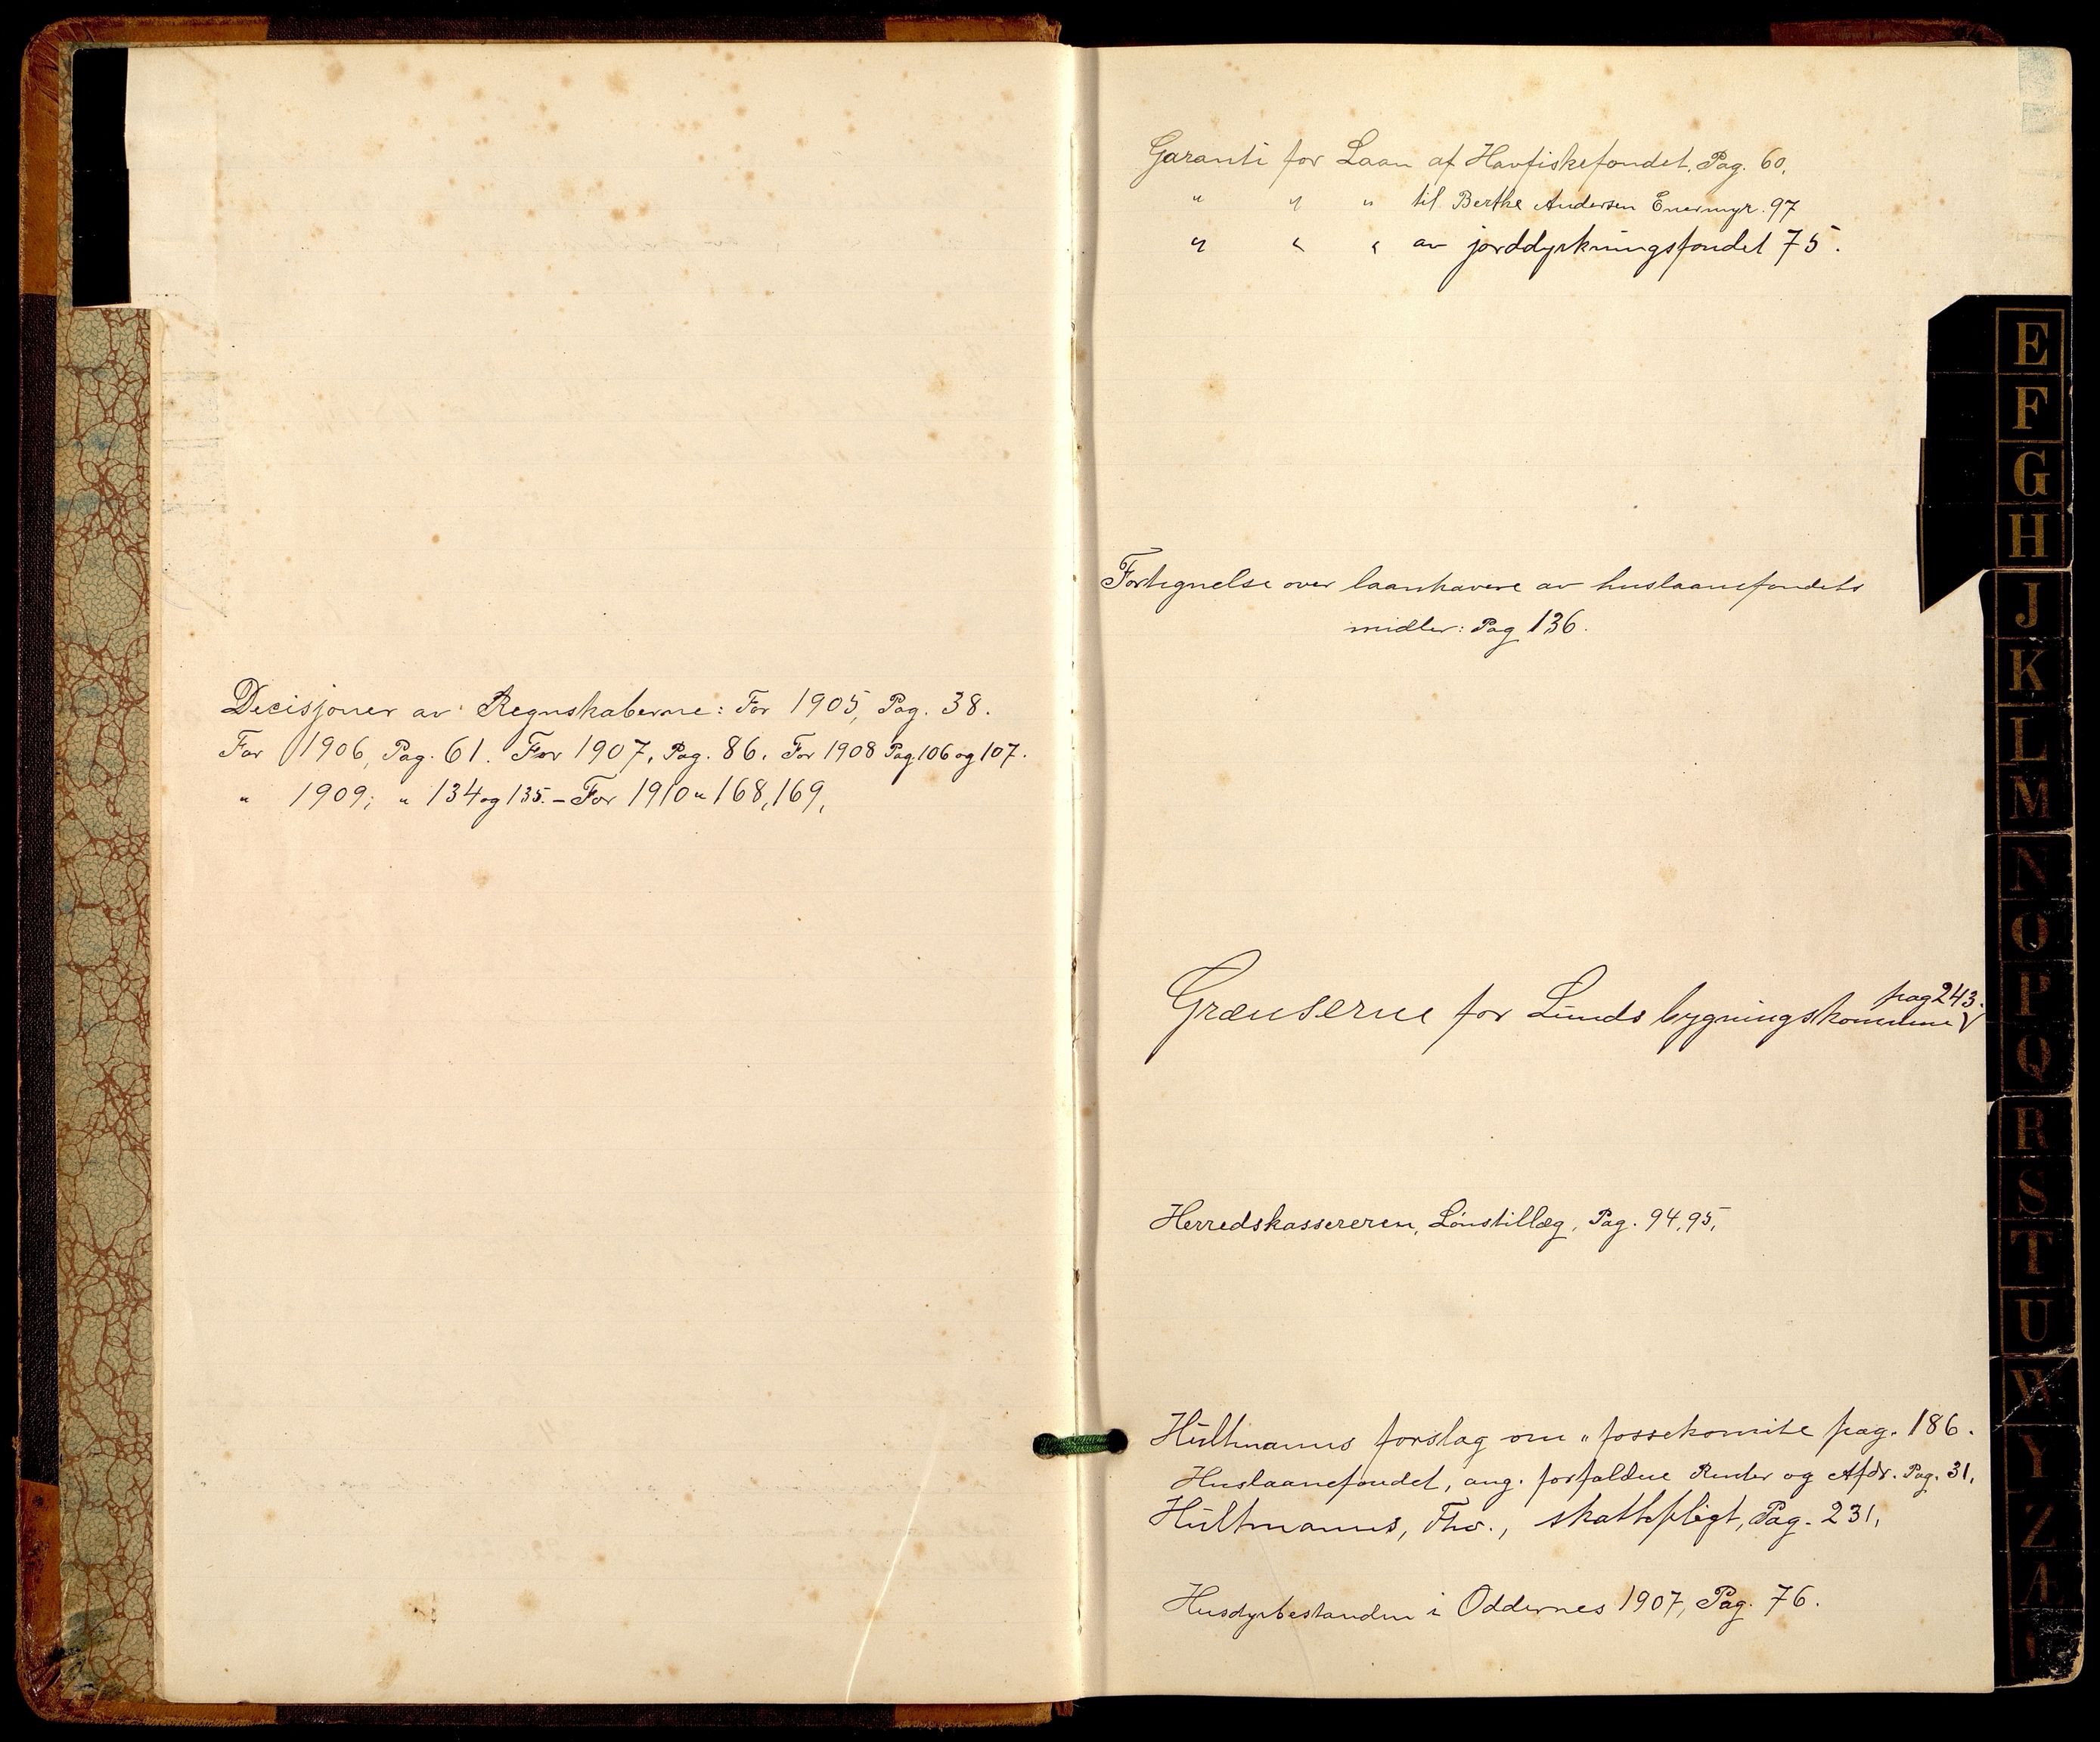 Decisjoner av Regnskaberne: For 1905, Pag. 38.
For 1906, Pag. 61. For 1907, Pag. 86. For 1908 Pag. 106 og 107.
" 1909; " 134 og 135. - For 1910 " 168, 169,
Garanti for Laan af Havfiskefondet, Pag. 60,
" " " til Berthe Andersen Enermyr. 97
" " " av jorddyrkningsfondet 75.
Fortegnelse over laanhavere av huslaanefondets
midler: Pag 136.
pag 243.
Grænserne for Lunds bygningskommune V
Herredskassereren, Lønstillæg, Pag. 94, 95,
Hültmanns forslag om " fossekomite pag. 186.
Huslaanefondet, ang. forfaldne Renter og Afdr. Pag. 31,
Hültmanns, Thv., skattepligt, Pag. 231,
Husdyrbestanden i Oddernes 1907, Pag. 76.
E
F
G
H
J
K
L
M
N
O
P
Q
R
S
T
U
W
Y
Z
Æ